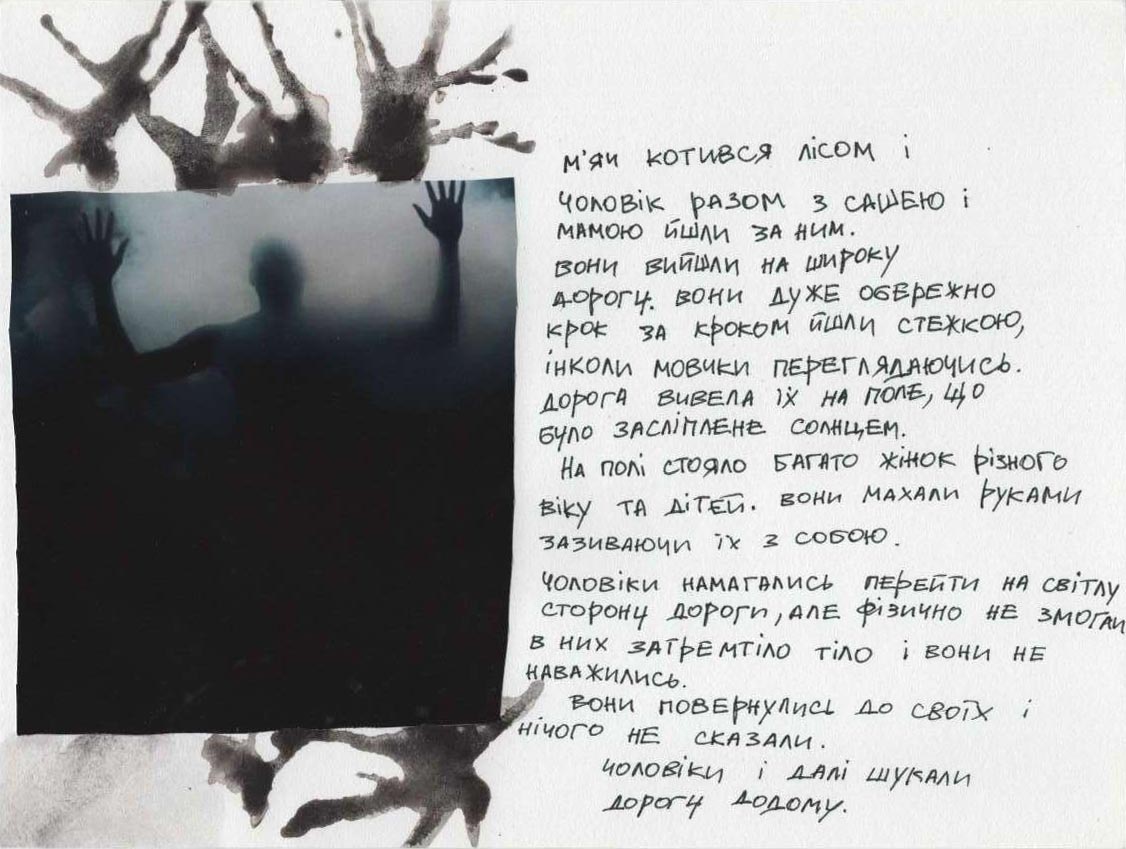 м'яч котився лісом і
чоловік разом з Сашею і
мамою йшли за ним.
вони вийшли на широку
дорогу. вони дуже обережно
крок за кроком йшли стежкою,
інколи мовчки переглядаючись.
дорога вивела їх на поле, що
було засліплене сонцем.
На полі стояло багато жінок різного
віку та дітей. вони махали руками
зазиваючи їх з собою.
чоловіки намагались перейти на світлу
сторону дороги, але фізично не змогли
в них затремтіло тіло і вони не
наважились.
вони повернулись до своїх і
нічого не сказали.
чоловіки і далі шукали
дорогу додому.